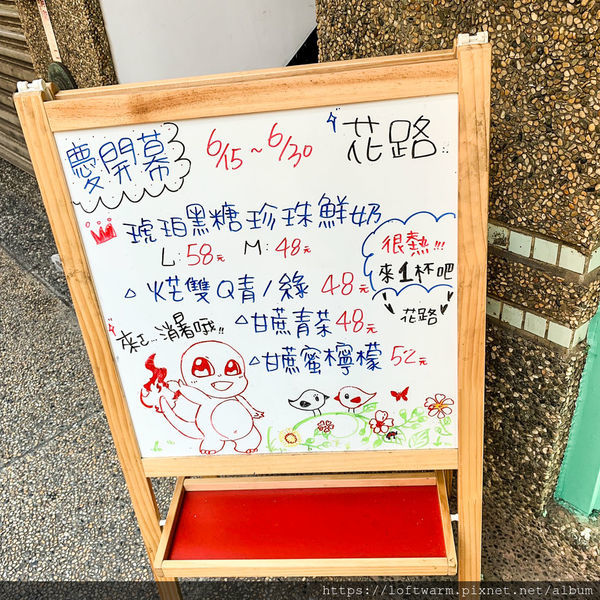 慶開幕 6/15~6/30 花路
琥珀黑糖珍珠鮮奶
L:58元 M:48元
很熱!!!
來1杯吧
花路
花雙Q青/綠 48元
甘蔗青茶48元
甘蔗蜜檸檬 52元
來ㄛ~消暑哦!!
https://loftwarm.pixnet.net/album